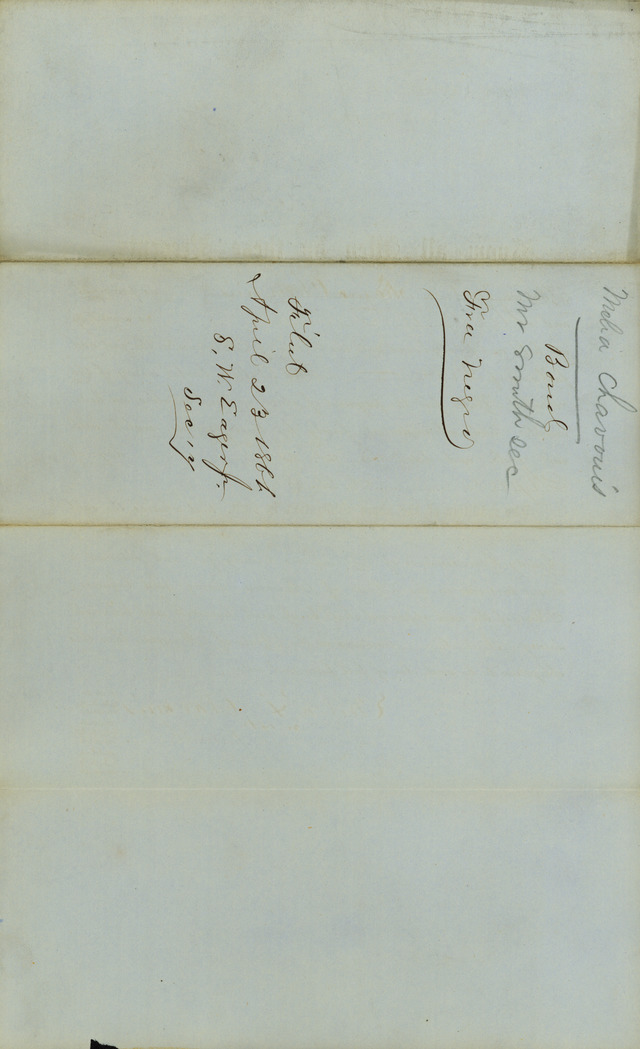 Melia Chavouis
Bond
Mr Smith Sec
Free Negro
Filed
April 23 1861.
S. W. Eager jr.
Sec'y